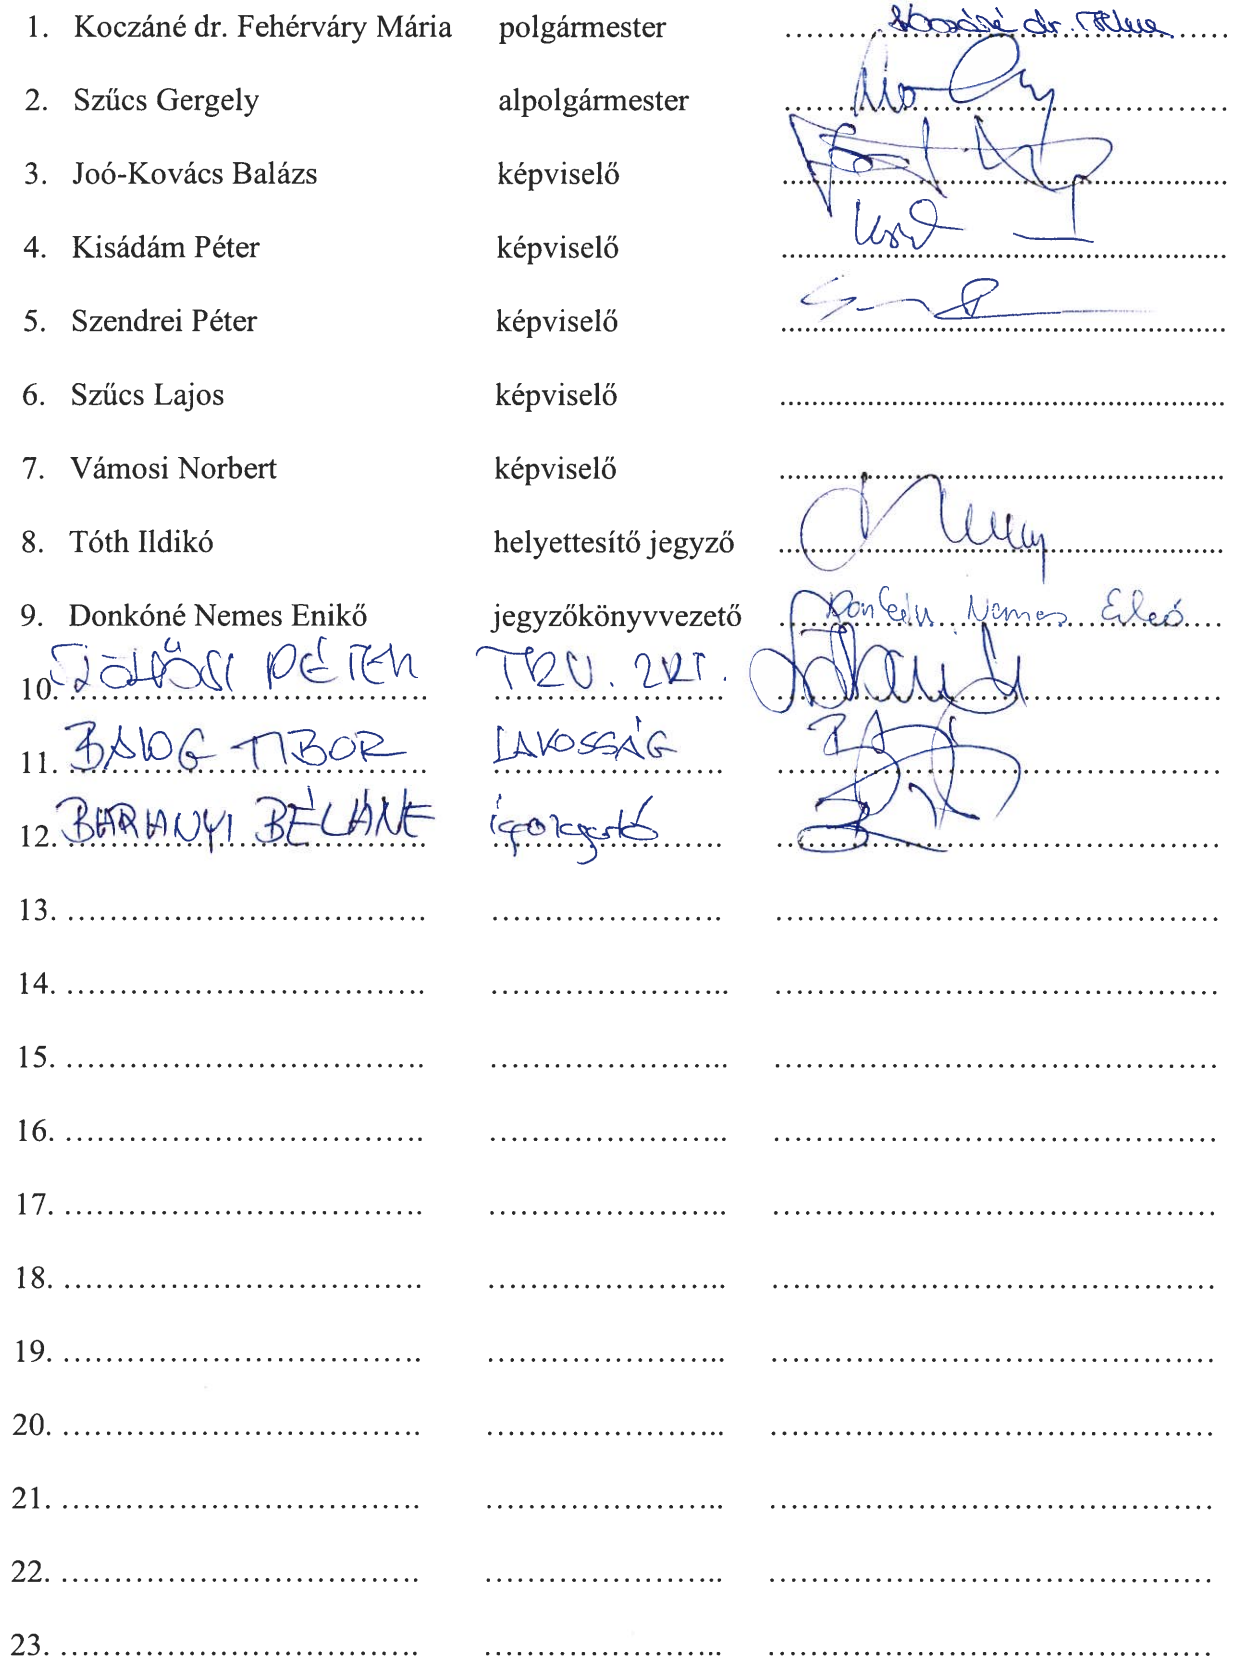 1. Koczáné dr. Fehérváry Mária polgármester ........ Koczáné dr. ........
2. Szűcs Gergely alpolgármester ........
3. Joó-Kovács Balázs képviselő ........
4. Kisádám Péter képviselő ........
5. Szendrei Péter képviselő ........
6. Szűcs Lajos képviselő ........
7. Vámosi Norbert képviselő ........
8. Tóth Ildikó helyettesítő jegyző ........
9. Donkóné Nemes Enikő jegyzőkönyvvezető ........ Donkóné Nemes Enikő
10. PÉTER TRV. ZRT.
11. BALOG TIBOR LAKOSSÁG
12. BARANYI BÉLÁNE igazgató
13. ........
14. ........
15. ........
16. ........
17. ........
18. ........
19. ........
20. ........
21. ........
22. ........
23. ........